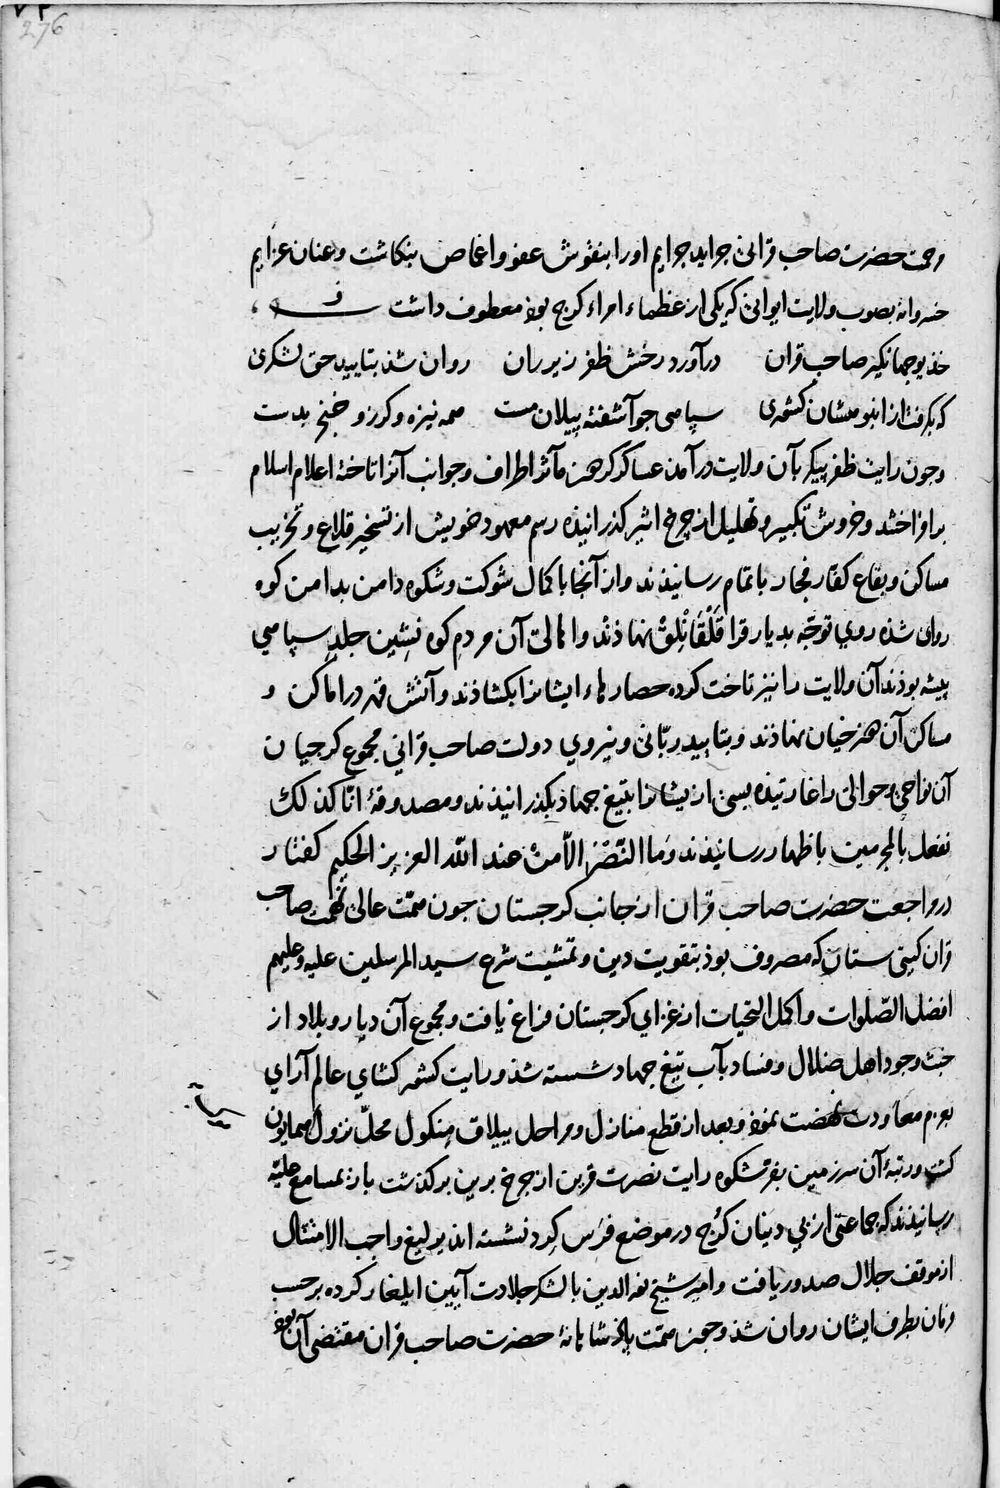 ۷۳
276
رحمت حضرت صاحب قرانی جراید جرایم او را بنقوش عفو و اغماض بنکاشت و عنان عزایم
خسروانه بصوب ولایت ایوانی که یکی از عظماء امراء کرج بوذ معطوف داشت
خدیو جهانکیر صاحب قران درآورد رخش ظفر زیر ران روان شذ بتایید حق لشکری
که بکرفت از انبوهشان کشوری سپاهی جو آشفته پیلان مست همه نیزه و کرز و خنجر بدست
و جون رایت ظفر پیکر بآن ولایت درآمذ عساکر کردون مآثر اطراف و جوانب آنرا تاخته اعلام اسلام
برافراختند و خروش تکبیر و تهلیل از چرخ اثیر کذرانیذه رسم معهود خویش از تسخیر قلاع و تخریب
مساکن و بقاع کفار فجار باتمام رسانیذند و از آنجا با کمال شوکت و شکوه دامن بدامن کوه
روان شذه روی توجّه بدیار قرا قَلْقَانْلِقْ نهاذند و اهالی آن مردم کوه نشین جلد سپاهی
پیشه بوذند آن ولایت را نیز تاخت کرده حصارهاء ایشانرا بکشاذند و آتش قهر در اماکن و
مساکن آن هنرخیان نهاذند و بتایید ربّانی و نیروی دولت صاحب قرانی مجموع کرجیان
آن نواحی و حوالی را غارتیذه بسی از یشانرا بتیغ جهاد بکذرانیذند و مصدوقهٔ انّا کذلک
نفعل بالمجرمین باظهار رسانیذند وَمَا النّصْرُ الّا مِنْ عند اللّه العزیز الحکیم کفتار
در مراجعت حضرت صاحب قران از جانب کرجستان جون همّت عالی نهمت صاحب
قران کیتی ستان که مصروف بوذ بتقویت دین و تمشیت شرع سید المرسلین علیه و علیهم
افضل الصّلوات و اکمل التحیات از غزای کرجستان فراغ یافت و مجموع آن دیار و بلاد از
خبث وجود اهل ضلال و فساد بآب تیغ جهاد شسته شذ و رایت کشورکشای عالم آرای
بعزم معاودت نهضت نموذ و بعد از قطع منازل و مراحل ییلاق مِنکول محلّ نزول همایون
کشت و رتبهٔ آن سرزمین بفرّ شکوه رایت نصرت قرین از جرخ برین برکذشت باز بمسامع علیّه
رسانیذند که جماعتی از بی دینان کُرْج در موضع فَرَس کِرد نشسته اند یرلیغ واجب الامتثال
از موقف جلال صدور یافت و امیر شیخ نورالدین با لشکر جلادت آیین ایلغار کرده برحسب
فرمان بطرف ایشان روان شذ و جون همّت باذشاهانهٔ حضرت صاحب قران مقتضی آن بوذ